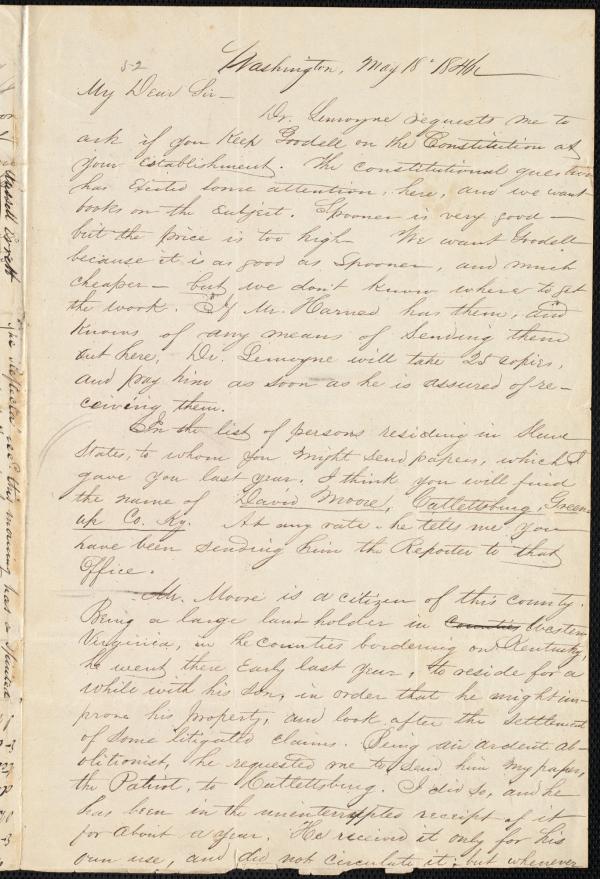 52
Washington, May 18th 1846
My Dear Sir—
Dr. Lemoyne requests me to
ask if you keep Goodell on the Constitution at
your establishment. The constitutional question
has excited some attention, here, and we want
books on the subject. Spooner is very good—
but the price is too high— We want Goodell
because it is as good as Spooner, and much
cheaper— but we don't know where to get
the work. If Mr. Harned has them, and
knows of any means of sending them
out here, Dr. Lemoyne will take 25 copies,
and pay him as soon as he is assured of re-
ceiving them.
In the list of persons residing in Slave
States, to whom you might send papers, which I
gave you last year, I think you will find
the name of David Moore, Catlettsburg, Green-
up Co. Ky. At any rate he tells me you
have been sending him the Reporter to that
Office.
Mr. Moore is a citizen of this county.
Being a large land holder in Counties Western
Virginia, in the counties bordering on Kentucky,
he went there early last year, to reside for a
while with his son, in order that he might im-
prove his property, and look after the settlement
of some litigated claims. Being an ardent ab-
olitionist, he requested me to send him my paper,
the Patriot, to Catlettsburg. I did so, and he
has been in the uninterrupted receipt of it
for about a year. He received it only for his
own use, and did not circulate it; but whenever
Russell Errett
this morning had a